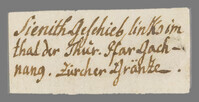 Sienith Geschieb, links im
thal der Thur. Pfar Gach-
nang. Zürcher Gränze.